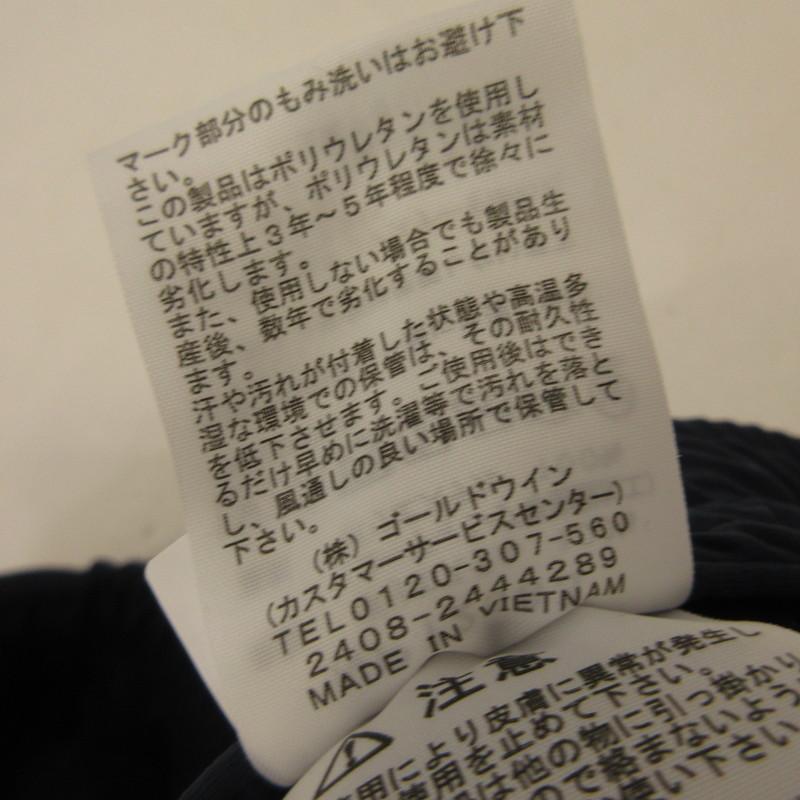 マーク部分のもみ洗いはお避け下
さい。
この製品はポリウレタンを使用し
ていますが、ポリウレタンは素材
の特性上3年～5年程度で徐々に
劣化します。
また、使用しない場合でも製品生
産後、数年で劣化することがあり
ます。
汗や汚れが付着した状態や高温多
湿な環境での保管は、その耐久性
を低下させます。ご使用後はでき
るだけ早めに洗濯等で汚れを落と
し、風通しの良い場所で保管して
下さい。
(株) ゴールドウイン
(カスタマーサービスセンター)
TEL0120-307-560
2408-2444289
MADE IN VIETNAM
注意
使用により皮膚に異常が発生し
使用を止めて下さい。
は他の物に引っ掛かり
ので絡まないよう
使い下さい